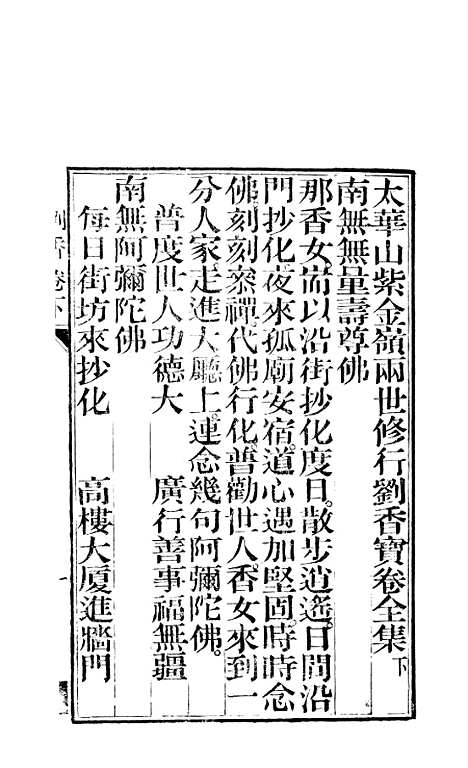 太華山紫金嶺兩世修行劉香寶卷全集下
南無無量壽尊佛
那香女耑以沿街抄化度日。散步逍遙。日間沿
門抄化。夜來孤廟安宿。道心遇加堅固。時時念
佛。刻刻叅禪。代佛行化。普勸世人。香女來到一
分人家。走進大廳上。連念幾句阿彌陀佛。
普度世人功德大　廣行善事福無疆
南無阿彌陀佛
每日街坊來抄化　高樓大厦進牆門
香卷下